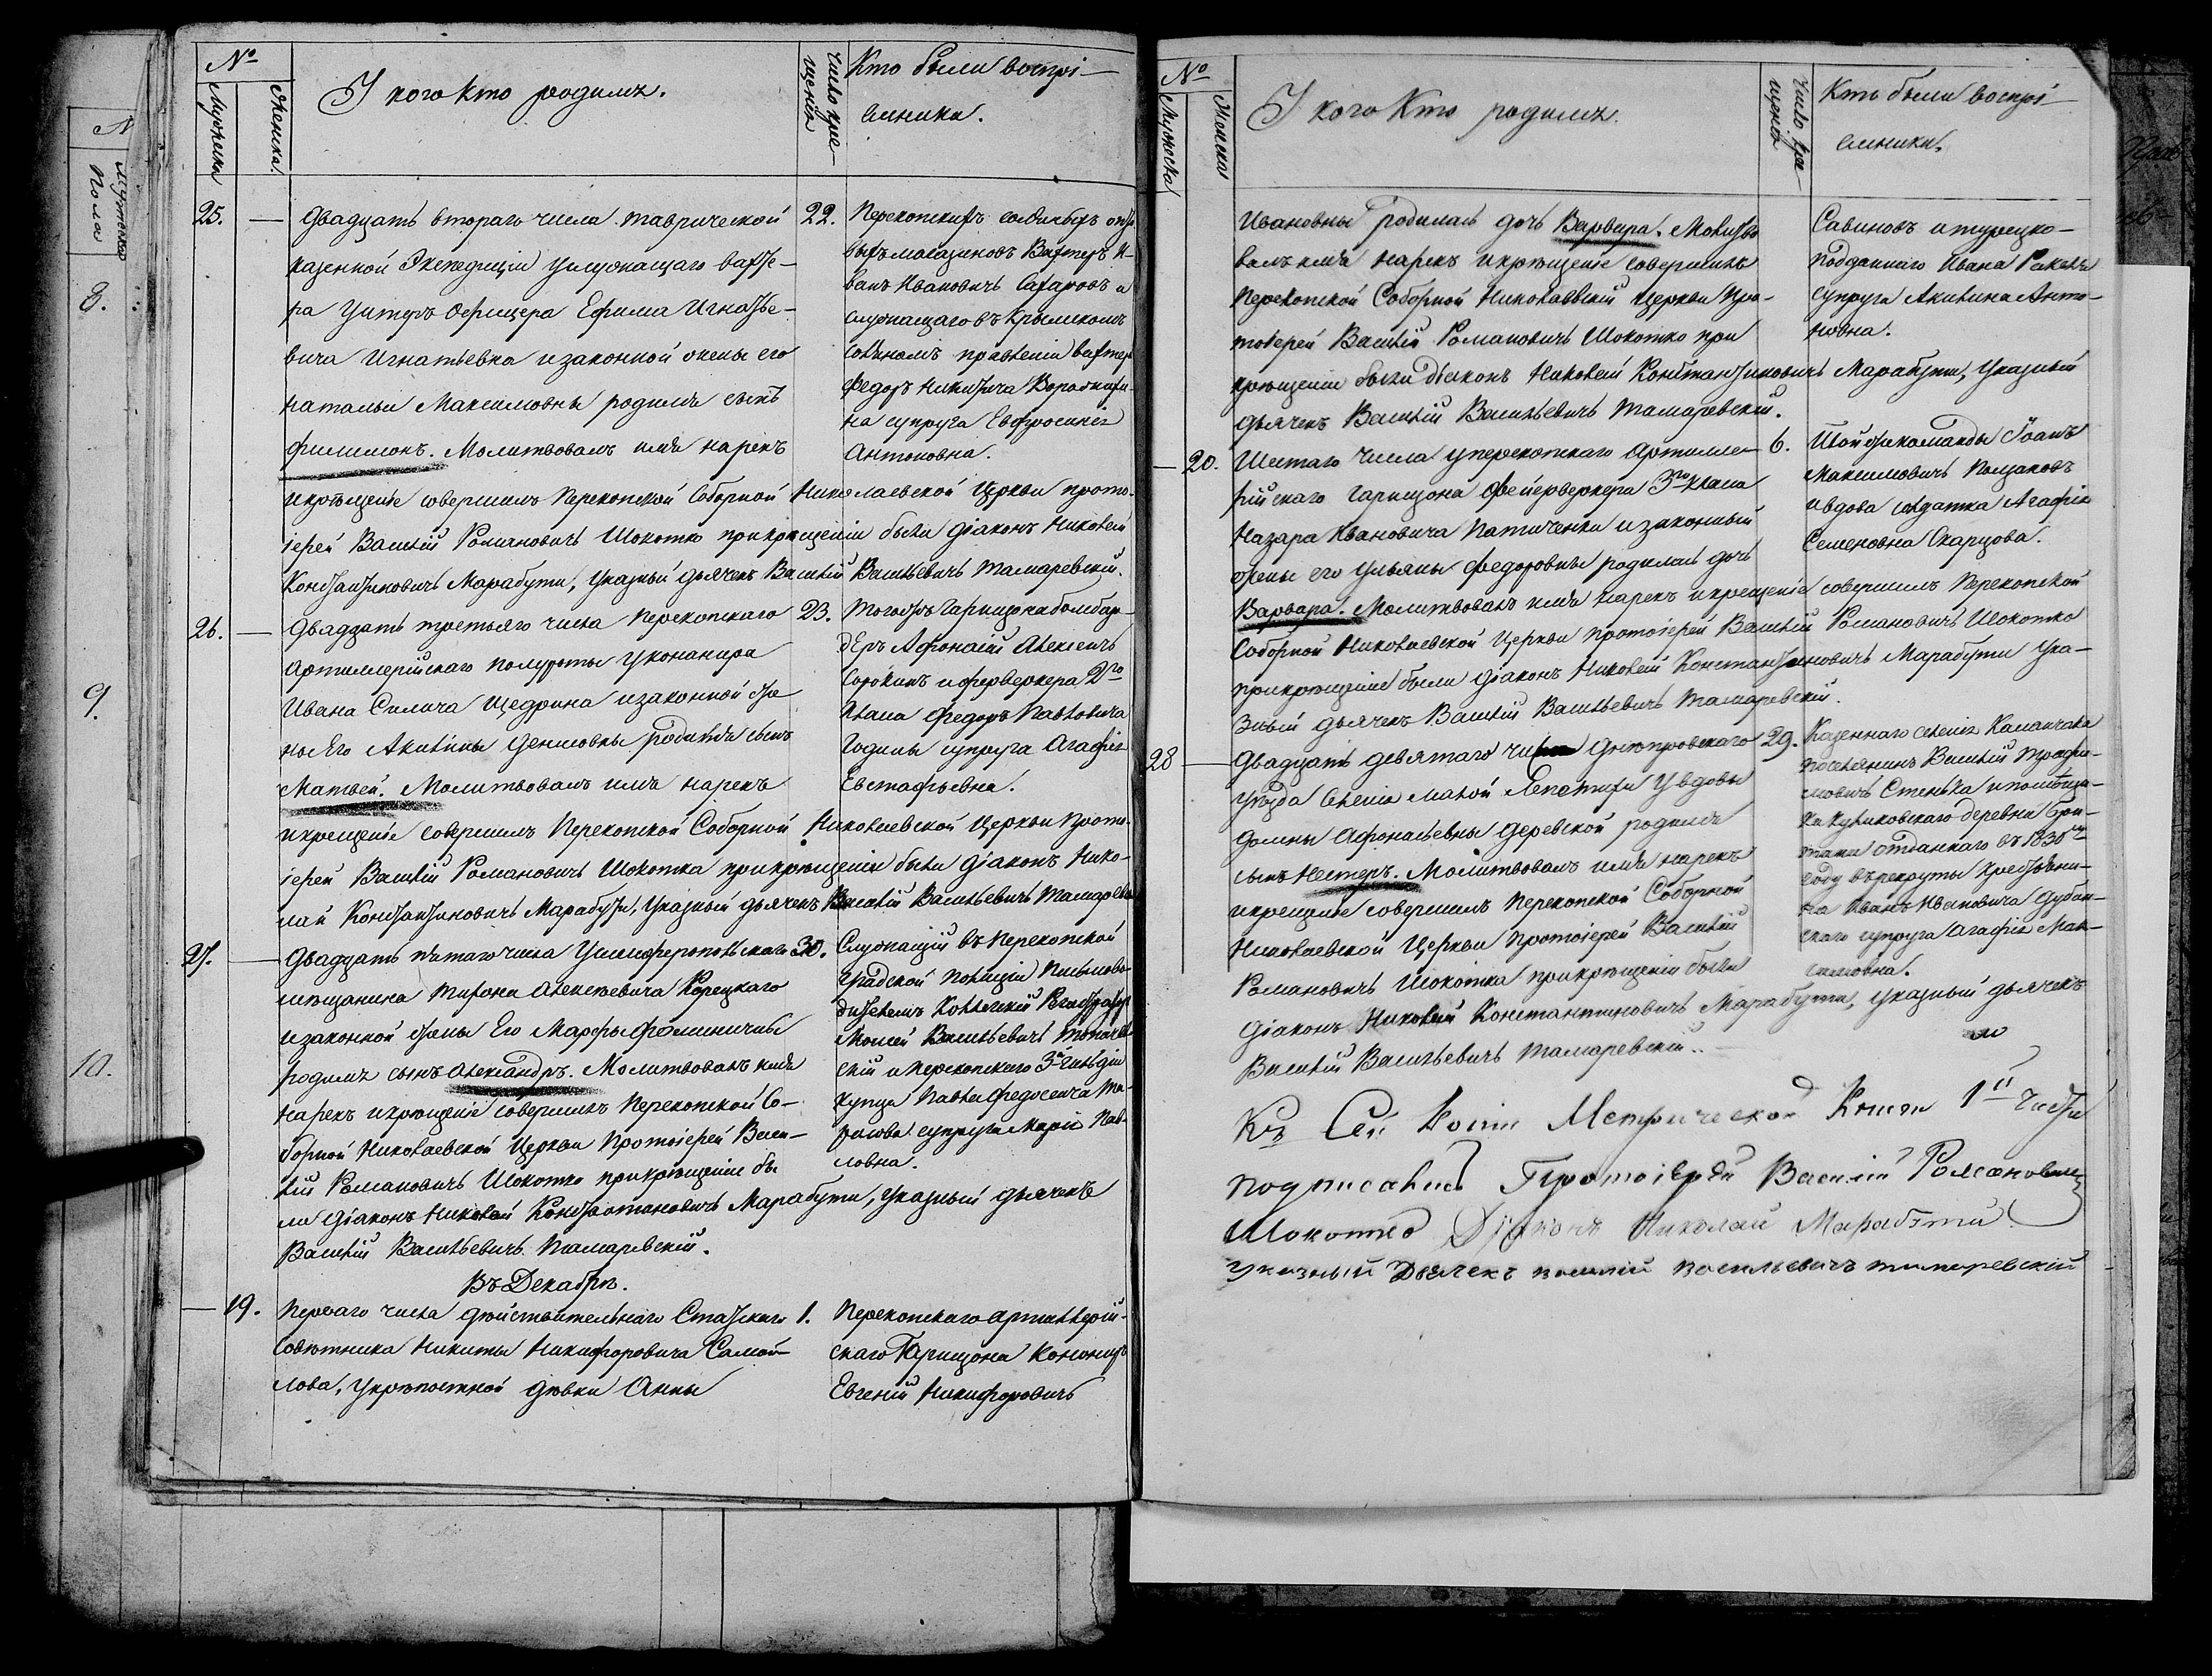 №
Мужеска
Женска
У кого кто родился.
Число крещенія
Кто были воспрі-
емники.
25.
Двадцать втораго числа Таврической
казенной Экспедиціи у служащаго вахте-
ра Унтеръ Офицера Ефима Игнатье-
вича Игнатьевка и законной жены его
Натальи Максимовны родился сынъ
Филимонъ. Молитвовалъ имя нарекъ
и крещеніе совершилъ Перекопской Соборной Николаевской Церкви прото-
іерей Василій Романовичъ Шокотко при крещеніи были діаконъ Николай
Константиновичъ Марабути, Указный дьячекъ Василій Васильевичъ Тамаревскій.
22.
Перекопскихъ
магазиновъ Вахтеръ И-
ванъ Ивановичъ Сахаровъ и
служащаго въ Крымскомъ
правленіи вахтера
Федора Никитича
на супруга Евфросинія
Антоновна.
26.
Двадцать третьяго числа Перекопскаго
Артиллерійскаго полуроты у конанира
Ивана Силича Щедрина и законной же
ны Его Акилины Денисовны родился сынъ
Матвей. Молитвовалъ имя нарекъ
и крещеніе совершилъ Перекопской Соборной Николаевской Церкви Прото-
іерей Василій Романовичъ Шокотка при крещеніи были діаконъ Нико-
лай Константиновичъ Марабути, Указный дьячекъ Василій Васильевичъ Тамаревскій
23.
Тогожъ Гарнизона бомбар-
деръ Афонасій Алексеичъ
Сорокинъ и ферверкера 2го
класа Федора Павловича
Години супруга Агафія
Евстафьевна.
27.
Двадцать пятаго числа У симферопольскаго
мещанина Тирона Алексеевича Корецкаго
и законной жены Его Марфы Фоминичны
родился сынъ Александръ. Молитвовалъ имя
нарекъ и крещеніе совершилъ Перекопской Со-
борной Николаевской Церкви Протоіерей Васи-
лій Романовичъ Шокотко при крещеніи бы
ли діаконъ Николай Константиновичъ Марабути, Указный дьячекъ
Василій Васильевичъ Тамаревскій.
30.
Служащій въ Перекопской
Градской Полиціи Письмово-
дителемъ Коллегскій Регистраторъ
Моисей Васильевичъ
скій и Перекопскаго 3й Гильдіи
купца Павла Федосеича
супруга Марія Пав-
ловна.
Въ Декабрѣ.
19.
Перваго числа Дѣйствительнаго Статскаго
Совѣтника Никиты Никифоровича Самой-
лова, У крѣпостной дѣвки Анны
1.
Перекопскаго артиллерій-
скаго Гарнизона Канониръ
Евгеній Никифоровичъ
№
Мужеска
Женска
У кого Кто родился.
Число кре-
щенія
Кто были воспрі-
емники.
Ивановны родилась дочь Варвара. Молитво
валъ имя нарекъ и крещеніе совершилъ
Перекопской Соборной Николаевской церкви Про-
тоіерей Василій Романовичъ Шокотко при
крещеніи были дьяконъ Николай Константиновичъ Марабути, Указный
дьячекъ Василій Васильевичъ Тамаревскій.
Савиновъ и турецко-
подданнаго Ивана
супруга Акилина Анто-
новна.
20.
Шестаго числа у перекопскаго Артилле-
рійскаго Гарнизона Фейерверкера 3го класа
Назара Ивановича Патиченки и законный
жены его Ульяны Федоровны родилась дочь
Варвара. Молитвовалъ имя нарекъ и крещеніе совершилъ Перекопской
Соборной Николаевской Церкви Протоіерей Василій Романовичъ Шокотко
при крещеніи были діаконъ Николай Константиновичъ Марабути Ука-
зный дьячекъ Василій Васильевичъ Тамаревскій.
6.
Той же команды Іоанъ
Максимовичъ
и вдова солдатка Агафія
Семеновна Скарцова.
28
Двадцать девятаго числа Днѣпровскаго
уѣзда Селенія малой Лепетихи У вдовы
Домны Афонасьевны Деревской родился
сынъ Нестеръ. Молитвовалъ имя нарекъ
и крещеніе совершилъ Перекопской Соборной
Николаевской Церкви Протоіерей Василій
Романовичъ Шокотка при крещеніи были
діаконъ Николай Константиновичъ Марабути, указный дьячекъ
Василій Васильевичъ Тамаревскій.
29.
Казеннаго селенія Каланчака
поселянинъ Василій Трофи-
мовичъ Стенька и помѣщи-
ка Куликовскаго деревни Бри-
тани отданнаго въ 1836м
году въ рекруты Крестьяни-
на Ивана Ивановича Дубин-
скаго супруга Агафія Мак-
симовна.
Къ Сей Копіи Метрической Книги 1й части
подписались Протоіерей Василій Романовичъ
Шокотко Діяконъ Николай Марабути
Указный Дьячекъ василій васильевичъ тамаревскій
№
Мужеска
Пола
8.
9.
10.